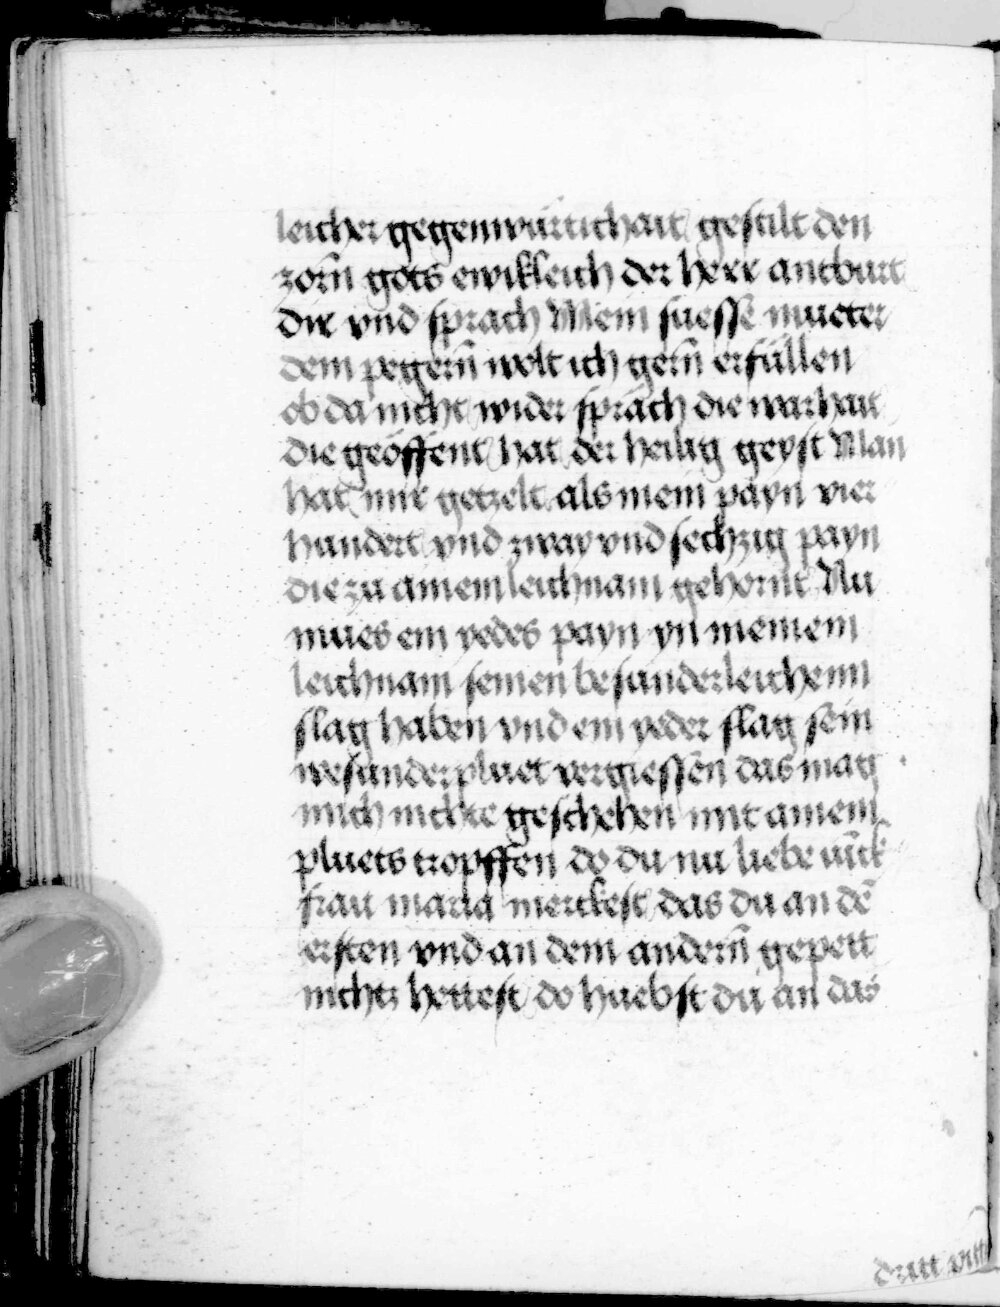 leicher gegenwürtichait gestilt den
zorñ gots ewikleich der herr antburt
dir vnd sprach Mein suesse mueter
dem pegerñ wolt ich gerñ erfüllen
ob da nicht wider sprach die warhait
die geöffent hat der heilig geyst Man
hat mir getzelt als mein payn vier
hundert vnd zway vnd sechzig payn
die zu ainem leichnam gehornt Nu
mues ein yedes payn yn meinem
leichnam seinen besunderleichenn
slag haben vnd ein yeder slag sein
wesunder pluet vergiessen das mag
mich nichte geschehen mit ainem
pluets tropffen do du nu liebe
frau maria merckest das du an dē
ersten vnd an dem anderñ gepett
nichtz hettest do huebst du an das
dritt